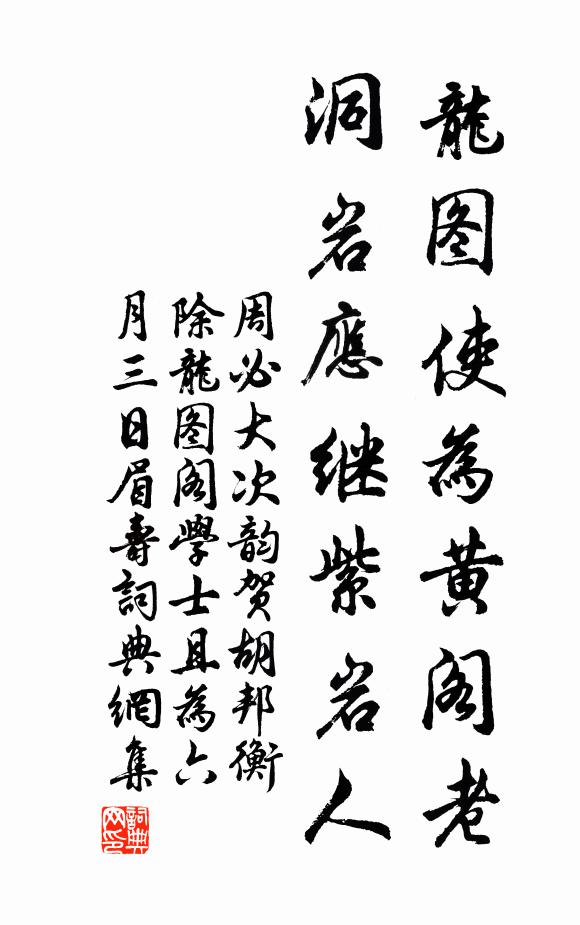 龍图使為黄阁老
洞岩應继紫岩人
周必大次韵贺胡邦衡
除龍图阁學士且為六
月三日眉壽詞典網集
詞典网印